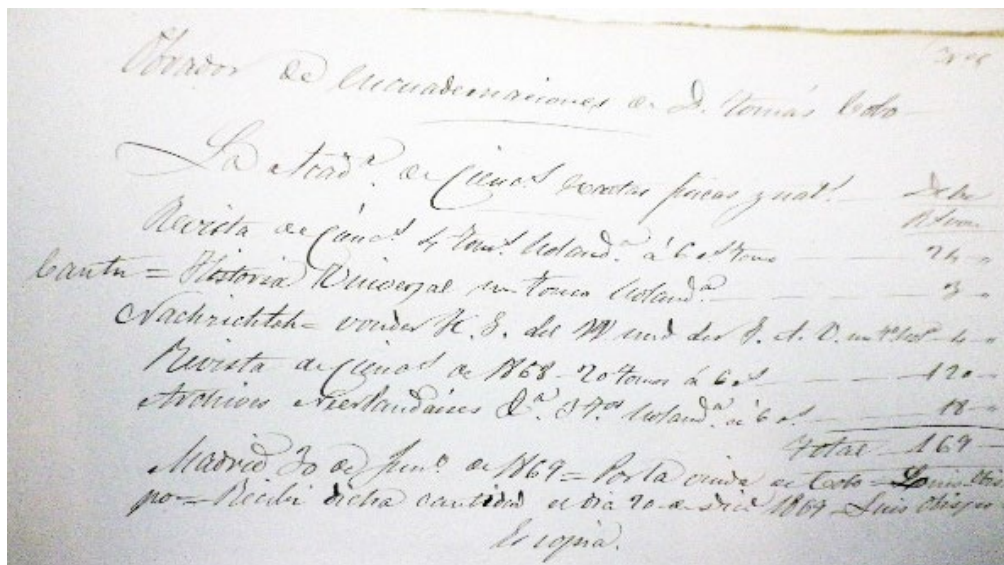 Obrador de encuadernaciones de D. Tomás Cobo
La Acadª. de Cienˢ. Exactas físicas y natˢ. Debe
Rˢ. von.
Revista de Cienˢ. 4 tomˢ. holandª. á 6 rˢ. tomo 24 "
Cantu = Historia Universal un tomo holandª. 3 "
Nachrichteh = vonder K. G. del W und der G. A. U. un tº holª. 4 "
Revista de Cienaˢ. de 1868 - 20 tomos á 6 rˢ. 120 "
Archives Neerlandaises Dª. 3 Tºˢ. holandª. á 6 rˢ. 18 "
Total 169 "
Madrid 30 de Junº. de 1869 = Por la viuda de Cobo = Luis Obis
po = Recibí dicha cantidad el dia 20 de dice 1869 - Luis Obispo
Es copia.